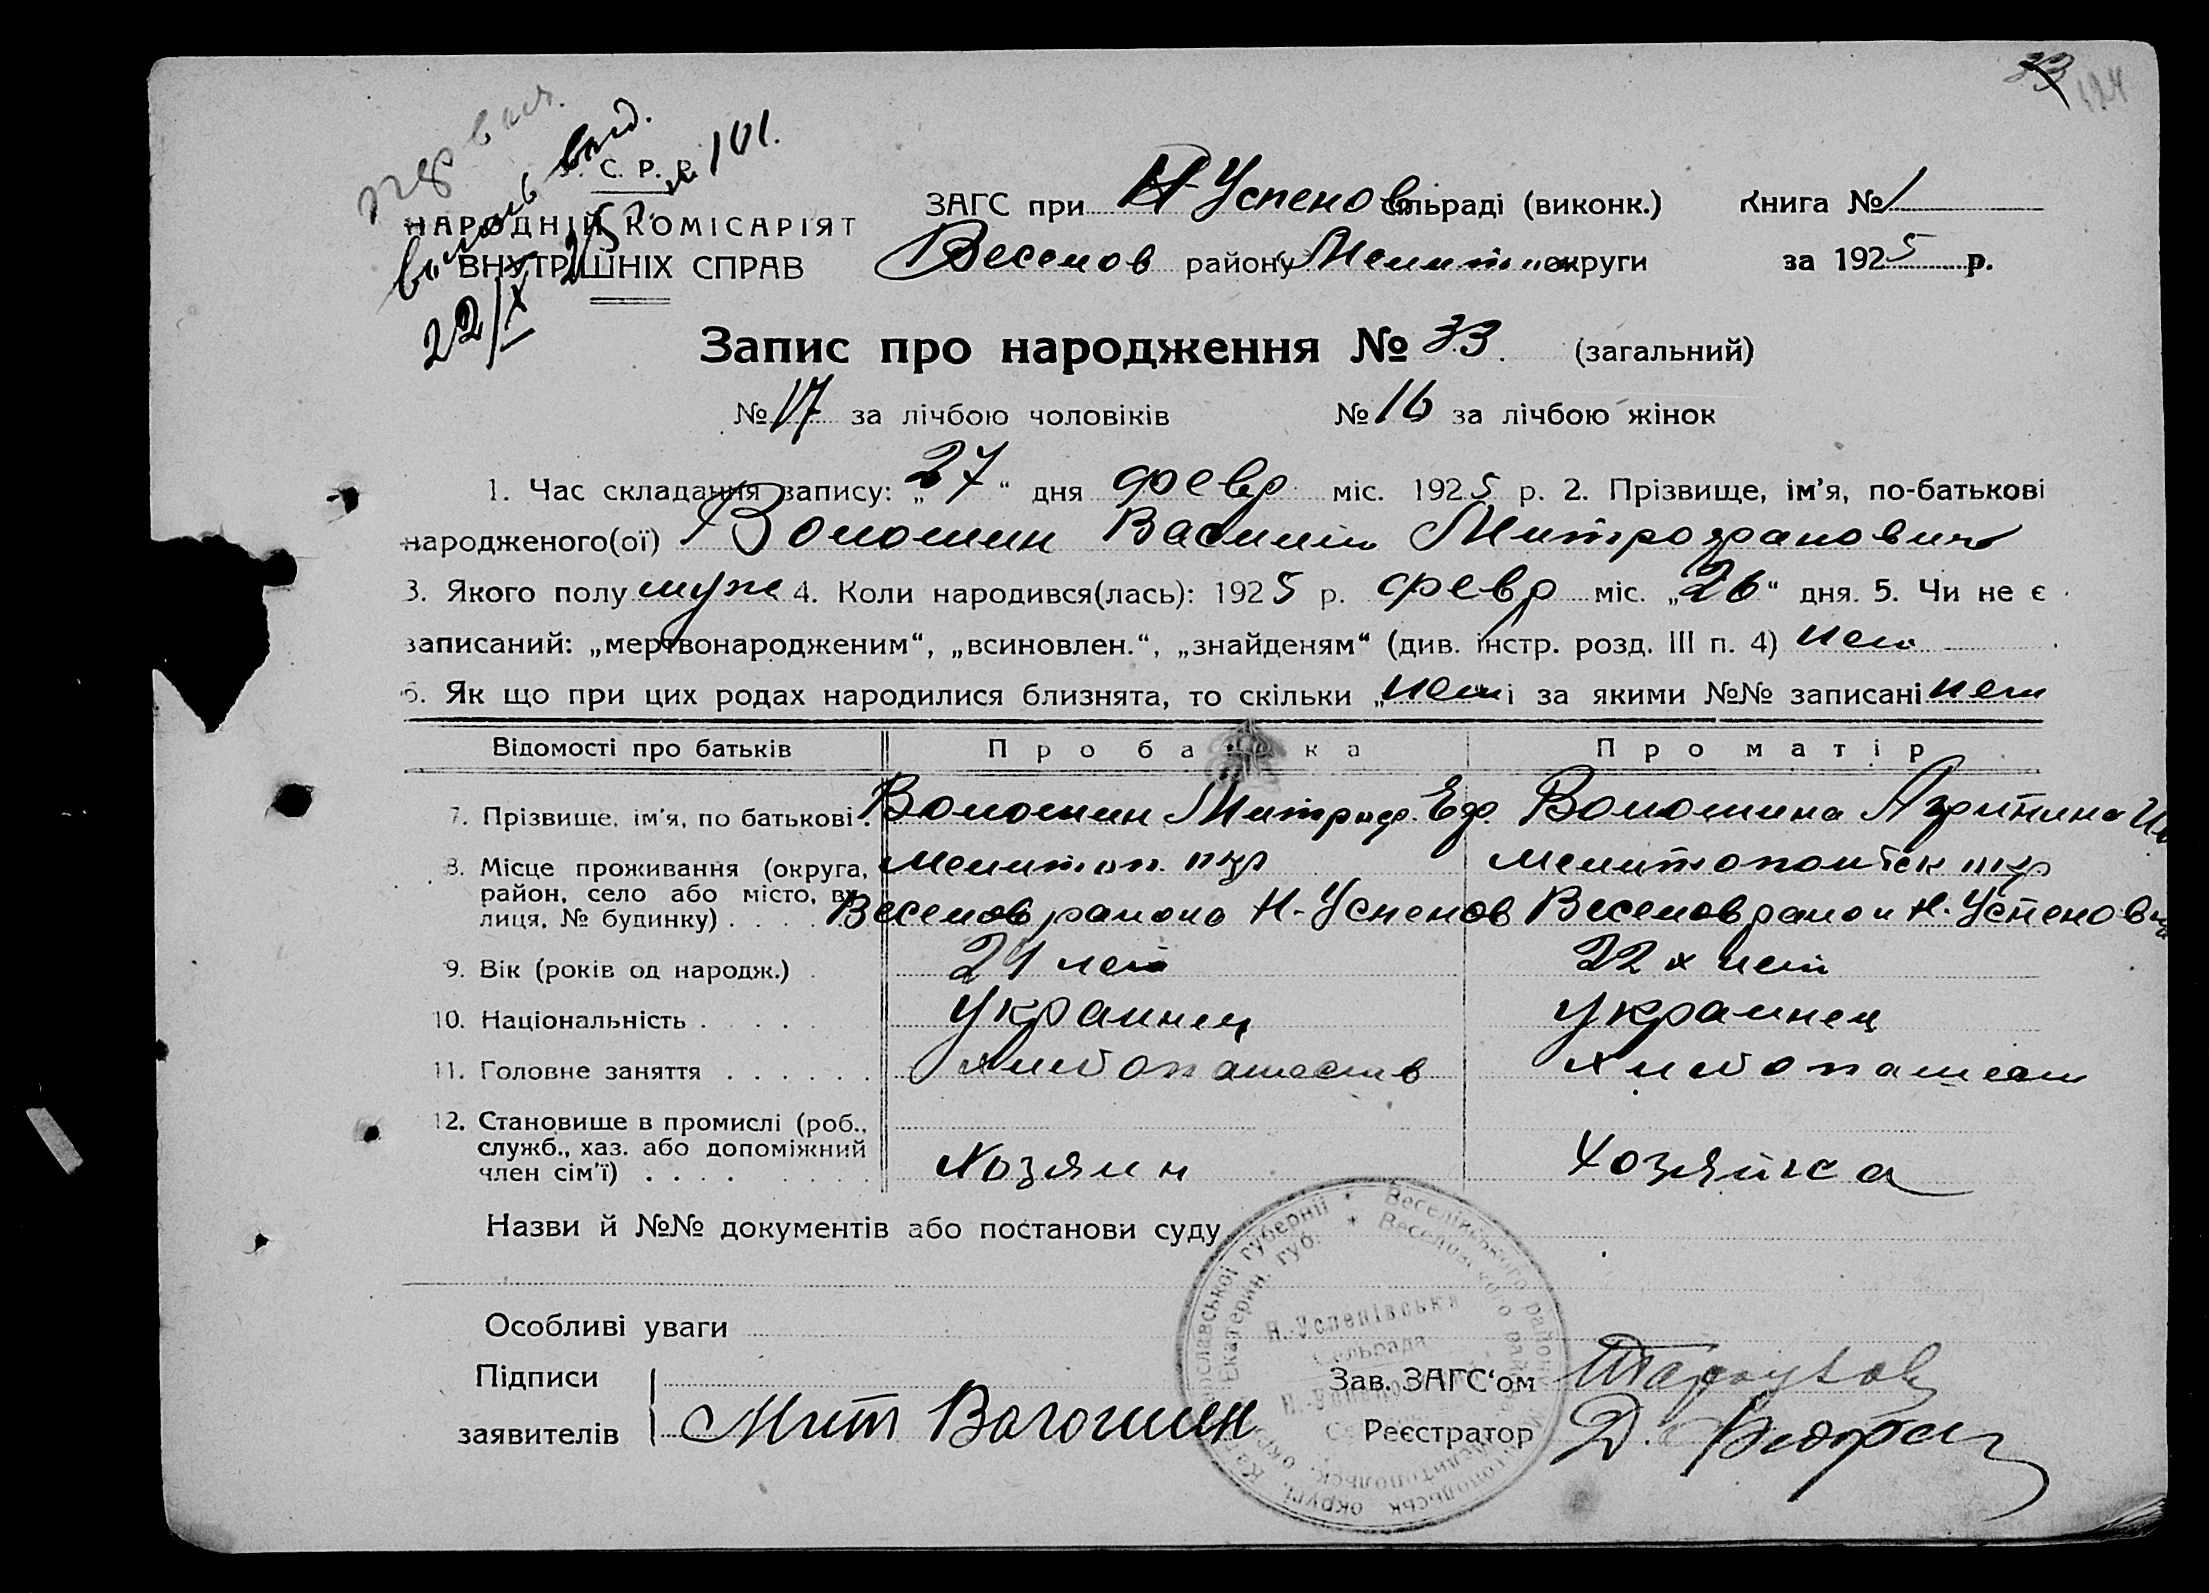 33
У. С. Р. Р.
101.
НАРОДНІЙ КОМІСАРІЯТ
ВНУТРІШНІХ СПРАВ
22/X
ЗАГС при Н Успенов сільраді (виконк.) Книга № 1
Веселов району Мелитоп округи за 1925 р.
Запис про народження № 33. (загальний)
№ 17 за лічбою чоловіків № 16 за лічбою жінок
1. Час складання запису: „27“ дня февр міс. 1925 р. 2. Прізвище, ім’я, по-батькові
народженого(ої) Волошин Василий Митрофанович
3. Якого полу муж 4. Коли народився(лась): 1925 р. февр міс. „26“ дня. 5. Чи не є
записаний: „мертвонародженим“, „всиновлен.“, „знайденям“ (див. інстр. розд. III п. 4) нет
6. Як що при цих родах народилися близнята, то скільки „нет і за якими №№ записані нет
Відомості про батьків Про батька Про матір
7. Прізвище, ім’я, по батькові. Волошин Митроф. Еф. Волошина
8. Місце проживання (округа, Мелитоп. окр Мелитопольск окр
район, село або місто, ву-
лиця, № будинку) . . . . Веселов района Н-Успенов Веселов район Н. Успеновка
9. Вік (років од народж.) . 21 лет 22 х лет
10. Національність . . . . . Украинец Украинец
11. Головне заняття . . . . . . хлебопашеств хлебопашест
12. Становище в промислі (роб.,
служб., хаз. або допоміжний
член сім’ї) . . . . Хозяин Хозяйка
Назви й №№ документів або постанови суду
Особливі уваги
Підписи Зав. ЗАГС‘ом
заявителів Мит Волошин Реєстратор Д.
Н.-Успенівська
Сільрада